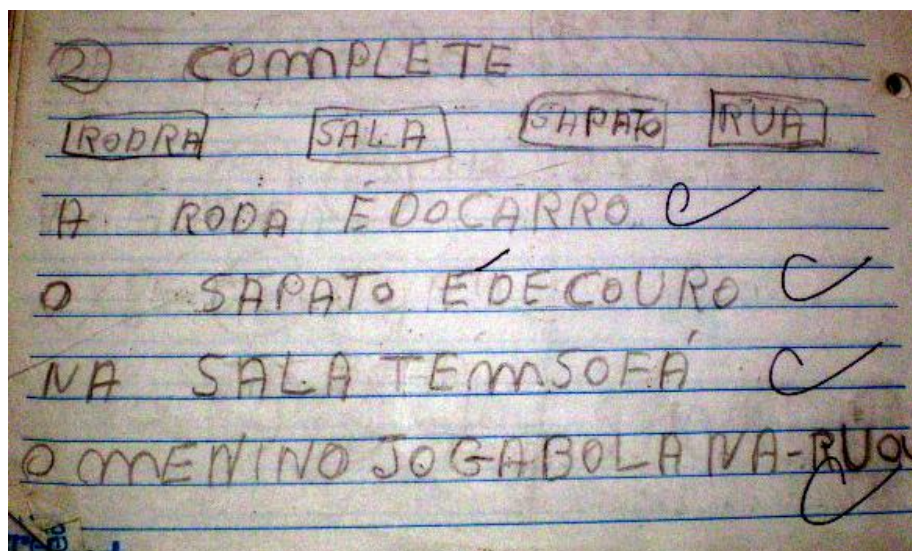 2) COMPLETE
RODRA SALA SAPATO RUA
A RODA É DOCARRO
O SAPATO É DE COURO
NA SALA TEMSOFÁ
O MENINO JOGABOLA NA-RUA